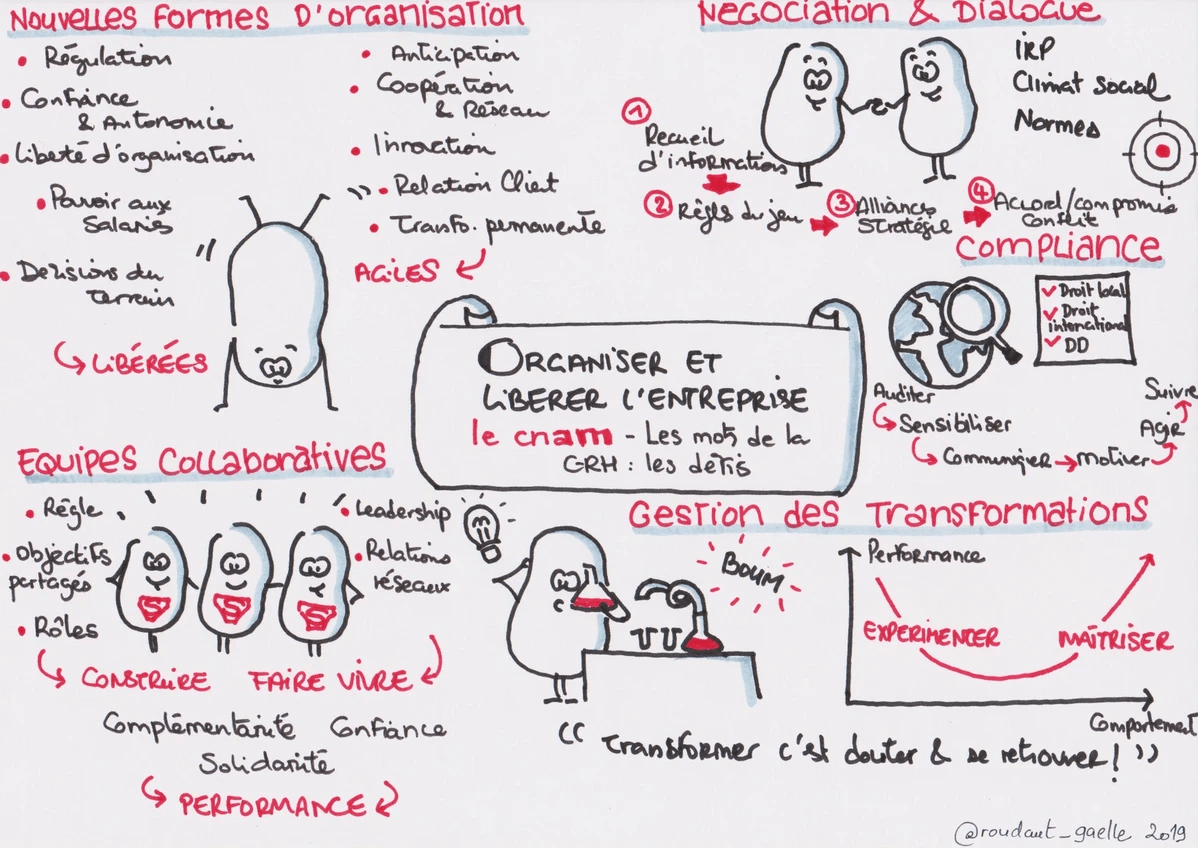 Nouvelles Formes D'organisation
Régulation
Confiance
& Autonomie
Liberté d'organisation
Pouvoir aux
Salariés
Décisions du
terrain
LIBÉRÉES
Anticipation
Coopération
& Réseau
Innovation
Relation Client
Transfo. permanente
AGILES
NEGOCIATION & DIALOGUE
IRP
Climat social
Normes
1
Recueil
d'informations
2 Règls du jeu
3 Alliances
Stratégie
4 Accord/compromis
Conflit
COMPLIANCE
Droit local
Droit
international
DD
Auditer
Sensibiliser
Communiquer
motiver
Agir
Suivre
ORGANISER ET
LIBERER L'ENTREPRISE
le cnam - Les mots de la
GRH : les défis
EQUIPES COLLABORATIVES
Règle
Objectifs
partagés
Rôles
Leadership
Relations
réseaux
S S S
CONSTRUIRE FAIRE VIVRE
Complémentarité Confiance
Solidarité
PERFORMANCE
GESTION DES TRANSFORMATIONS
BOUM
Performance
EXPERIMENTER
MAÎTRISER
Comportement
“ Transformer c'est douter & se retrouver ! ”
@roudaut_gaelle 2019